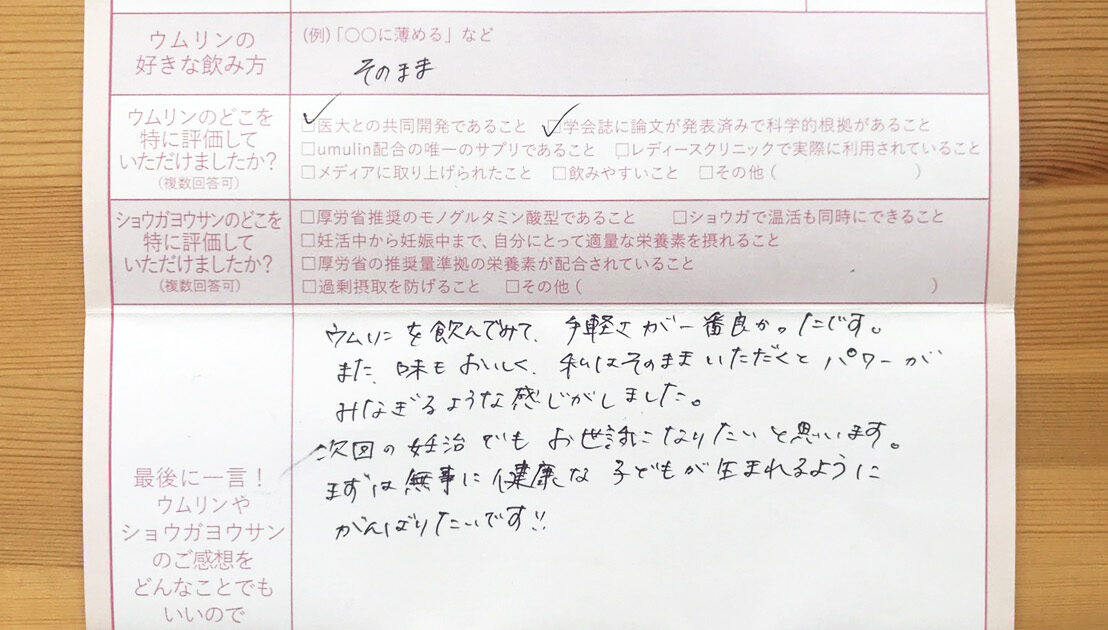 ウムリンの
好きな飲み方
(例)「〇〇に薄める」など
そのまま
ウムリンのどこを
特に評価して
いただけましたか?
(複数回答可)
□医大との共同開発であること □学会誌に論文が発表済みで科学的根拠があること
□umulin配合の唯一のサプリであること □レディースクリニックで実際に利用されていること
□メディアに取り上げられたこと □飲みやすいこと □その他( )
ショウガヨウサンのどこを
特に評価して
いただけましたか?
(複数回答可)
□厚労省推奨のモノグルタミン酸型であること □ショウガで温活も同時にできること
□妊活中から妊娠中まで、自分にとって適量な栄養素を摂れること
□厚労省の推奨量準拠の栄養素が配合されていること
□過剰摂取を防げること □その他( )
最後に一言!
ウムリンや
ショウガヨウサン
のご感想を
どんなことでも
いいので
ウムリンを飲んでみて、手軽さが一番良かったです。
また、味もおいしく、私はそのままいただくとパワーが
みなぎるような感じがしました。
次回の妊治でもお世話になりたいと思います。
まずは無事に健康な子どもが生まれるように
がんばりたいです!!